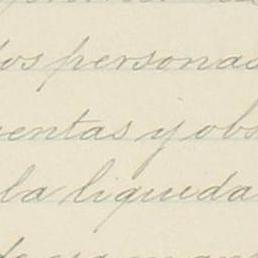 dos personas
uentas y obs
la liquida